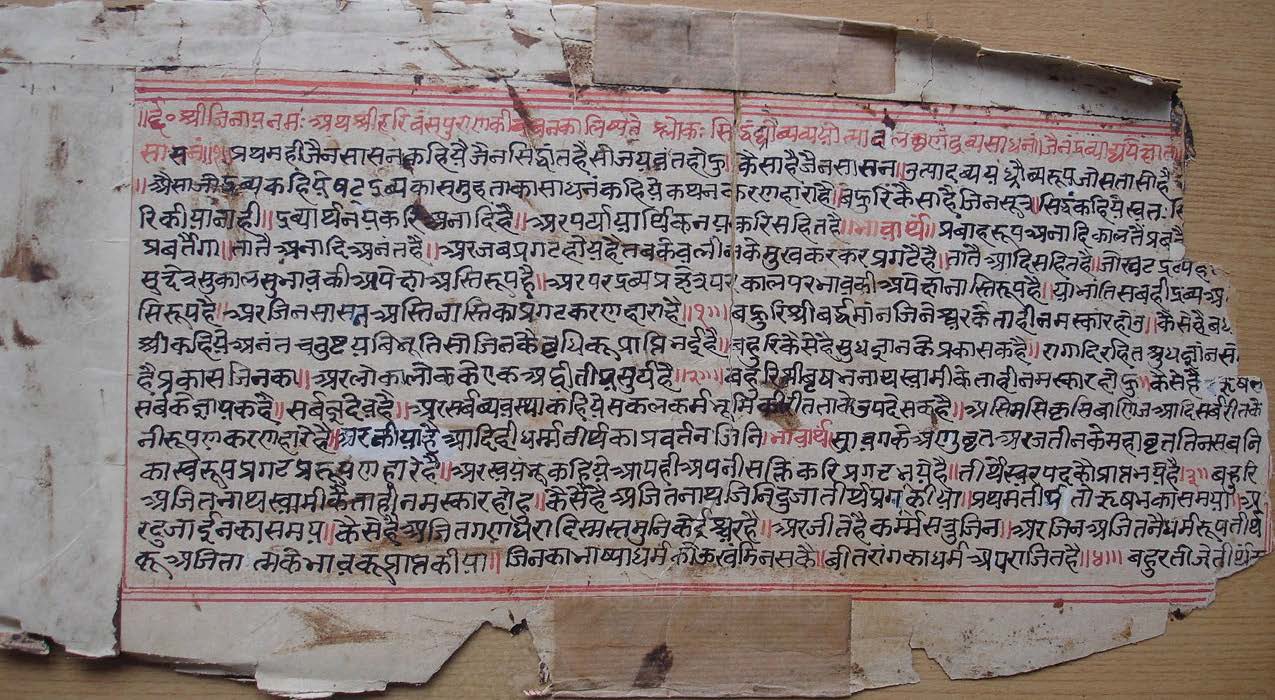 ॥दे०॥ श्रीजिनायनमः अथश्रीहरिवंसपुराणकीवचनकालिष्यते श्लोकः सिद्धंध्रौव्यव्ययोत्पादलक्षणंद्रव्यसाधनं।जैनंद्रव्याद्यपेक्षातः
सासनं॥१॥प्रथमहीजैनसासनकहियैजैनसिद्धांतहैसोजयवंतहोऊ॥कैसाहैजैनसासन॥उत्पादव्ययध्रौव्यरूपजोसतासोहै
॥औसाजोद्रव्यकहियेषटद्रव्यकासमुहताकासाधनंकहियेकथनकरणहाराहै॥बहुरिकैसाहैजिनसूत्र॥सिद्धंकहियेस्वतः
रिकीयानाही॥द्रव्यार्थनयकरिअनादिहै॥अरपर्यायार्थिकनयकरिसहितहै॥भावार्थ॥प्रवाहरूपअनादिकालतैप्रव
प्रवर्तैगा॥तातैअनादिअनंतहै॥अरजबप्रगटहोयहैतबकेवलीनकेमुखकरकरप्रगटैहै॥तातैआदिसहितहै॥जोस्वटद्रव्य
सुक्षेत्रसुकालसुभावकीअपेक्षाअस्तिरूपहै॥अरपरद्रव्यप्रक्षेत्रपरकालपरभावकीअपेक्षानास्तिरूपहै॥याभांतिसबहीद्रव्यअ
स्तिरूपहै॥अरजिनसासनअस्तिनास्तिकाप्रगटकरणहाराहै॥१॥॥बहुरिश्रीबर्द्धमानजिनेश्वरकेताहीनमस्कारहोउ॥कैसेहैबध
श्रीकहियेअनंतचतुष्टयविभूतिसोजिनकैवृधिकूप्राप्तिभईहै॥बहुरिकैसेहैसुधज्ञानकेप्रकासकहै॥रागादिरहितसुधज्ञानसो
हैप्रकासजिनका॥अरलोकालोककेएकअद्वीतीयसुर्यहै॥२॥॥बहुरिश्रीवृषभनाथस्वामीकेताहीनमस्कारहोऊ॥कैसेहैऋषभ
सर्बकेज्ञायकहै॥सर्बज्ञदेवहै॥अरसर्बव्यवस्थाकहियेसकलकर्मभूमिकीरीतताकेउपदेसकहै॥असिमसिकृसिबाणिजआदिसर्बरीतके
नीरूपणकरणहारेहै॥अरकीयाहैआदिहीधर्मतीर्थकाप्रवर्तनजिनि॥भावार्थ॥श्रावगकेअणुवृतअरजतीनकेमहावृततिनसबनि
कास्वरूपप्रगटप्ररूपणहारेहै॥अरस्वयंभूकहियेआपहीअपनीसक्तिकरिप्रगटभयेहै॥तीर्थंस्वरपदकौप्राप्तभयेहै॥३॥बहुरि
अजितनाथस्वामीकेताहीनमस्कारहोहु॥कैसेहैअजितनाथजिनिदुजातीर्थप्रगटकीयो॥प्रथमतीर्थतोऋषभकासमयो॥अ
रदुजाईनकासमय॥कैसेहैअजितगणधरादिस्मस्तमुनिकेईश्वरहै॥अरजीतेहैकर्म्मसत्रुजिन॥अरजिनअजितनेधर्मरूपतीर्थ
कूअजितात्मकेभावकूप्राप्तकीया॥जिनकाभाष्याधर्मकोऊखंमिनसकै॥बीतरागकाधर्मअपराजितहै॥४॥॥बहुरतीजेतीर्थ